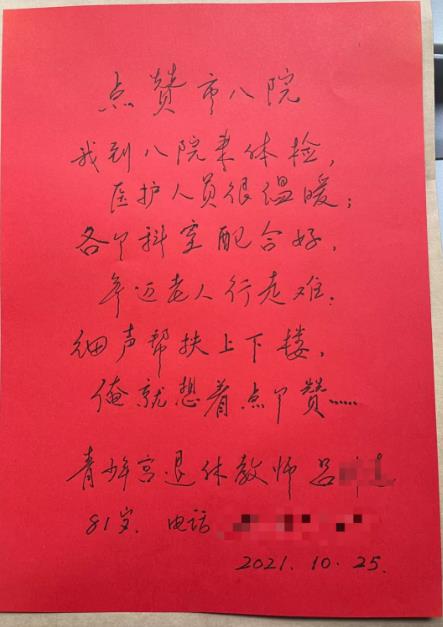 点赞市八院
我到八院来体检，
医护人员很温暖；
各个科室配合好，
年迈老人行走难．
细声帮扶上下楼，
俺就想着点个赞……
青少年宫退休教师 吕
81岁．电话
2021.10.25.